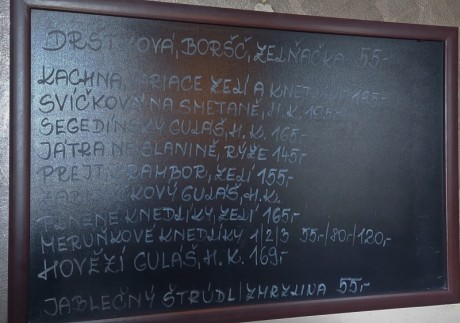 DRŠŤKOVÁ, BORŠČ, ZELŇAČKA 55,-
KACHNA, VARIACE ZELÍ A KNEDLÍKŮ 195,-
SVÍČKOVÁ NA SMETANĚ, H.K. 195,-
SEGEDÍNSKÝ GULÁŠ, H.K. 165,-
JÁTRA NE SLANINĚ, RÝŽE 145,-
PREJT, BRAMBOR, ZELÍ 155,-
GULÁŠ, H.K.
PLNĚNÉ KNEDLÍKY, ZELÍ 165,-
MERUŇKOVÉ KNEDLÍKY 1/2/3 55,-/80,-/120,-
HOVĚZÍ GULÁŠ, H.K. 169,-
JABLEČNÝ ŠTRÚDL/ZMRZLINA 55,-